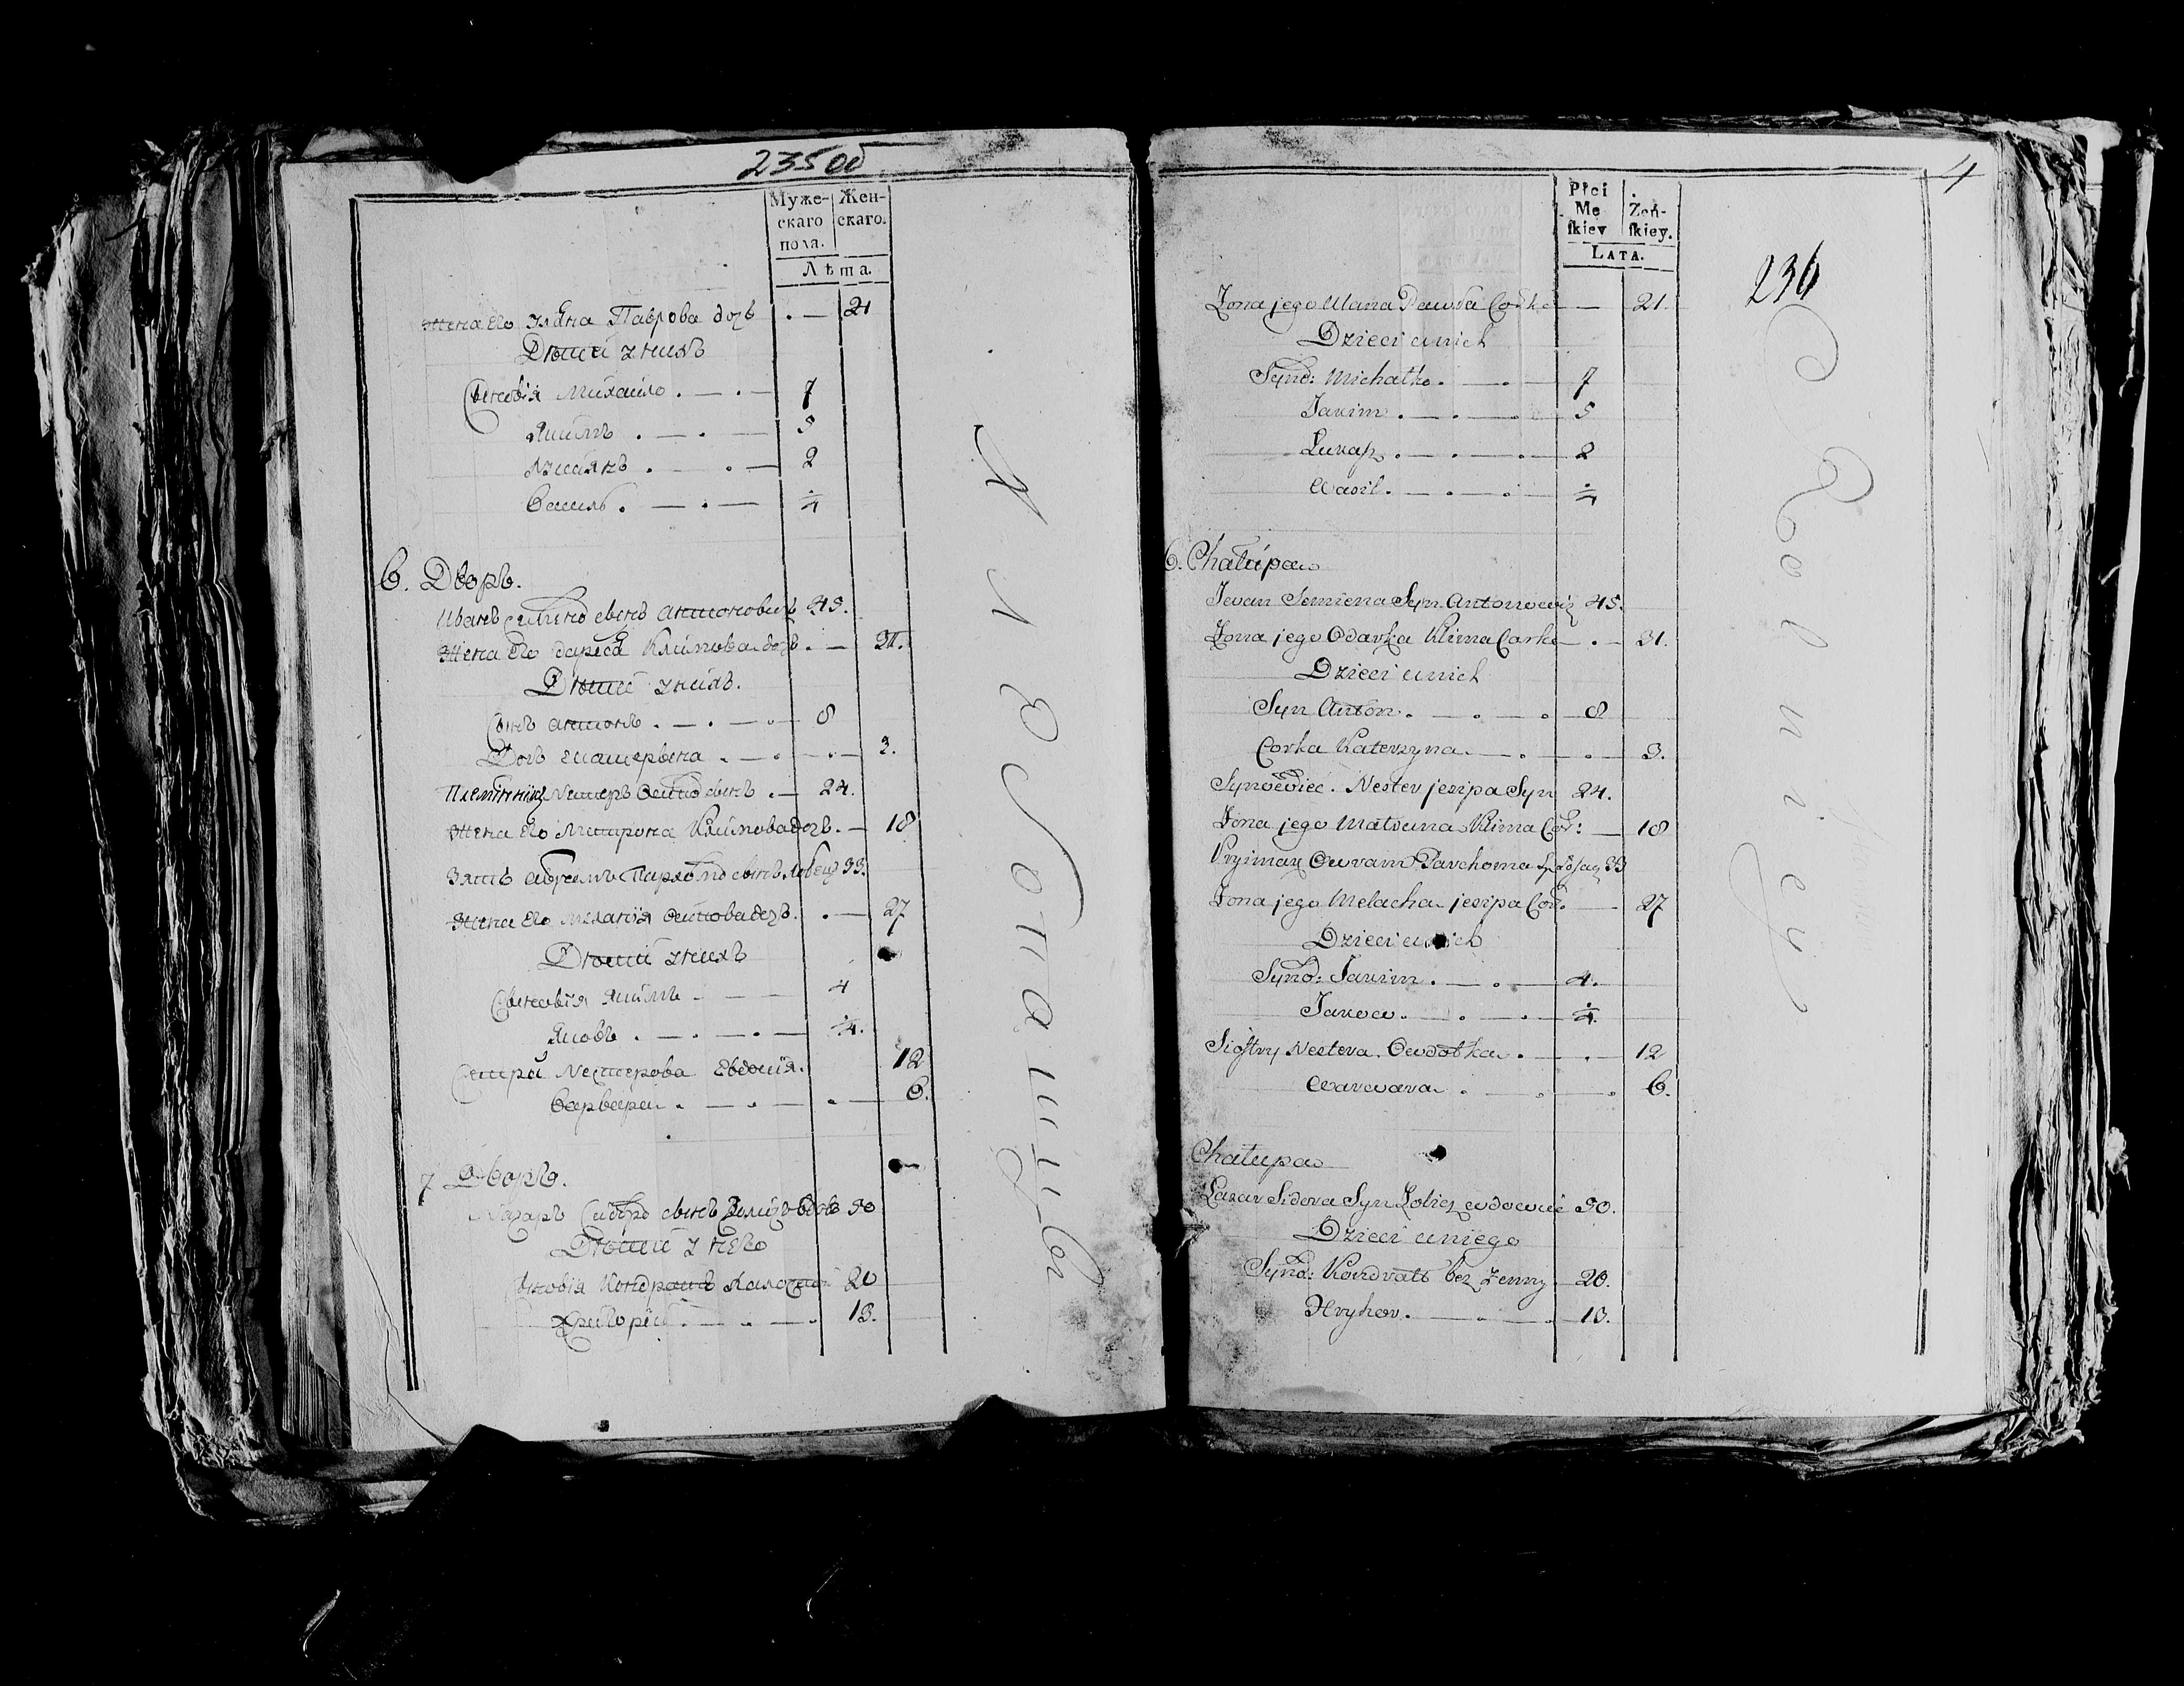 235 об.
Муже- Жен-
скаго скаго.
пола.
Лѣта.
Жена его Уляна Павлова дочь . — 21
Дѣти у нихъ
Сыновія Михайло . — . — 7
Якимъ . — . — 5
Лукіянъ . — . — 2
Василь . — . — 1/4
6. Дворъ.
Иванъ сынъ Антоновичъ 45.
Жена его Климова дочь . — 31.
Дѣти у нихъ.
Сынъ Антонъ . — . — 8
Дочь Екатерына . — . — 3.
Племѣнникъ Нестеръ Осипов сынъ . — 24.
Жена его Матрона Климова дочь . — 18
Зять Авраамъ Пархомов сынъ 33.
Жена его Меланія Осипова дочь . — 27
Дѣти у нихъ
Сыновія Якимъ . — 4
Яковъ . — . — 1/4.
Сестри Нестерова Евдокія. 12
Варвара . — . — 6.
7 Дворъ.
Лазарь Сидоров сынъ вдовъ 50
Дѣти у него
Сыновія Кондратъ холостой 20
Григорій . — . — 13.
Крестьяне
4
Płci Żeń-
Mę skiey.
skiey
LATA.
236
Żona jego Ulana Pawła Corka — 21.
Dzieci u nich
Syno: Michałko . — . — 7
Jakim . — . — 5
Łukasz . — . — 2
Wasil . — . — 1/4
6. Chałupa
Jwan Semiena Syn Antonowicz 45.
Żona jego Odarka Klima Corka — . — 31.
Dzieci u nich
Syn Anton . — . — 8
Corka Katerzyna . — . — 3.
Synowiec . Nester jesipa Syn 24.
Żona jego Matruna Klima Cor: — 18
Pryimak Owram Parchoma 33
Żona jego Melacha jesipa Cor. — 27
Dzieci u nich
Syno: Jakim . — . — 4.
Jakow . — . — 1/4
Siostry Nestera . Owdotka . — . — 12
Warwara . — . — 6.
Chałupa
Łazar Sidora Syn wdowiec 50.
Dzieci u niego
Syno: Kondrat bez Żenny 20.
Hryhor . — . — 13.
Rolnicy